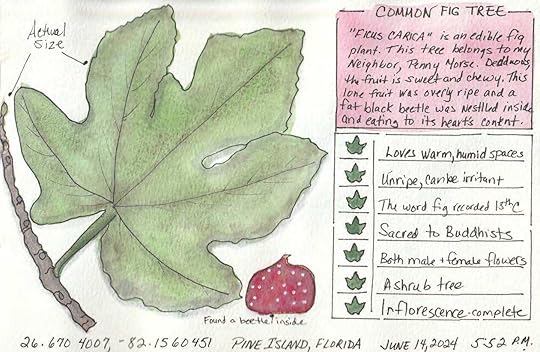 Actual
Size
COMMON FIG TREE
"FICUS CARICA" is an edible fig
plant. This tree belongs to my
Neighbor, Penny Horse.
the fruit is sweet and chewy. This
lone fruit was overly ripe and a
fat black beetle was nestled inside
and eating to its heart's content.
Loves warm, humid spaces
Unripe, can be irritant
The word fig recorded 13th C
Sacred to Buddhists
Both male + female flowers
A shrub tree
Inflorescence-complete
Found a beetle inside
26.670 4007, -82.1560451 PINE ISLAND, FLORIDA JUNE 14, 2024 5:52 P.M.